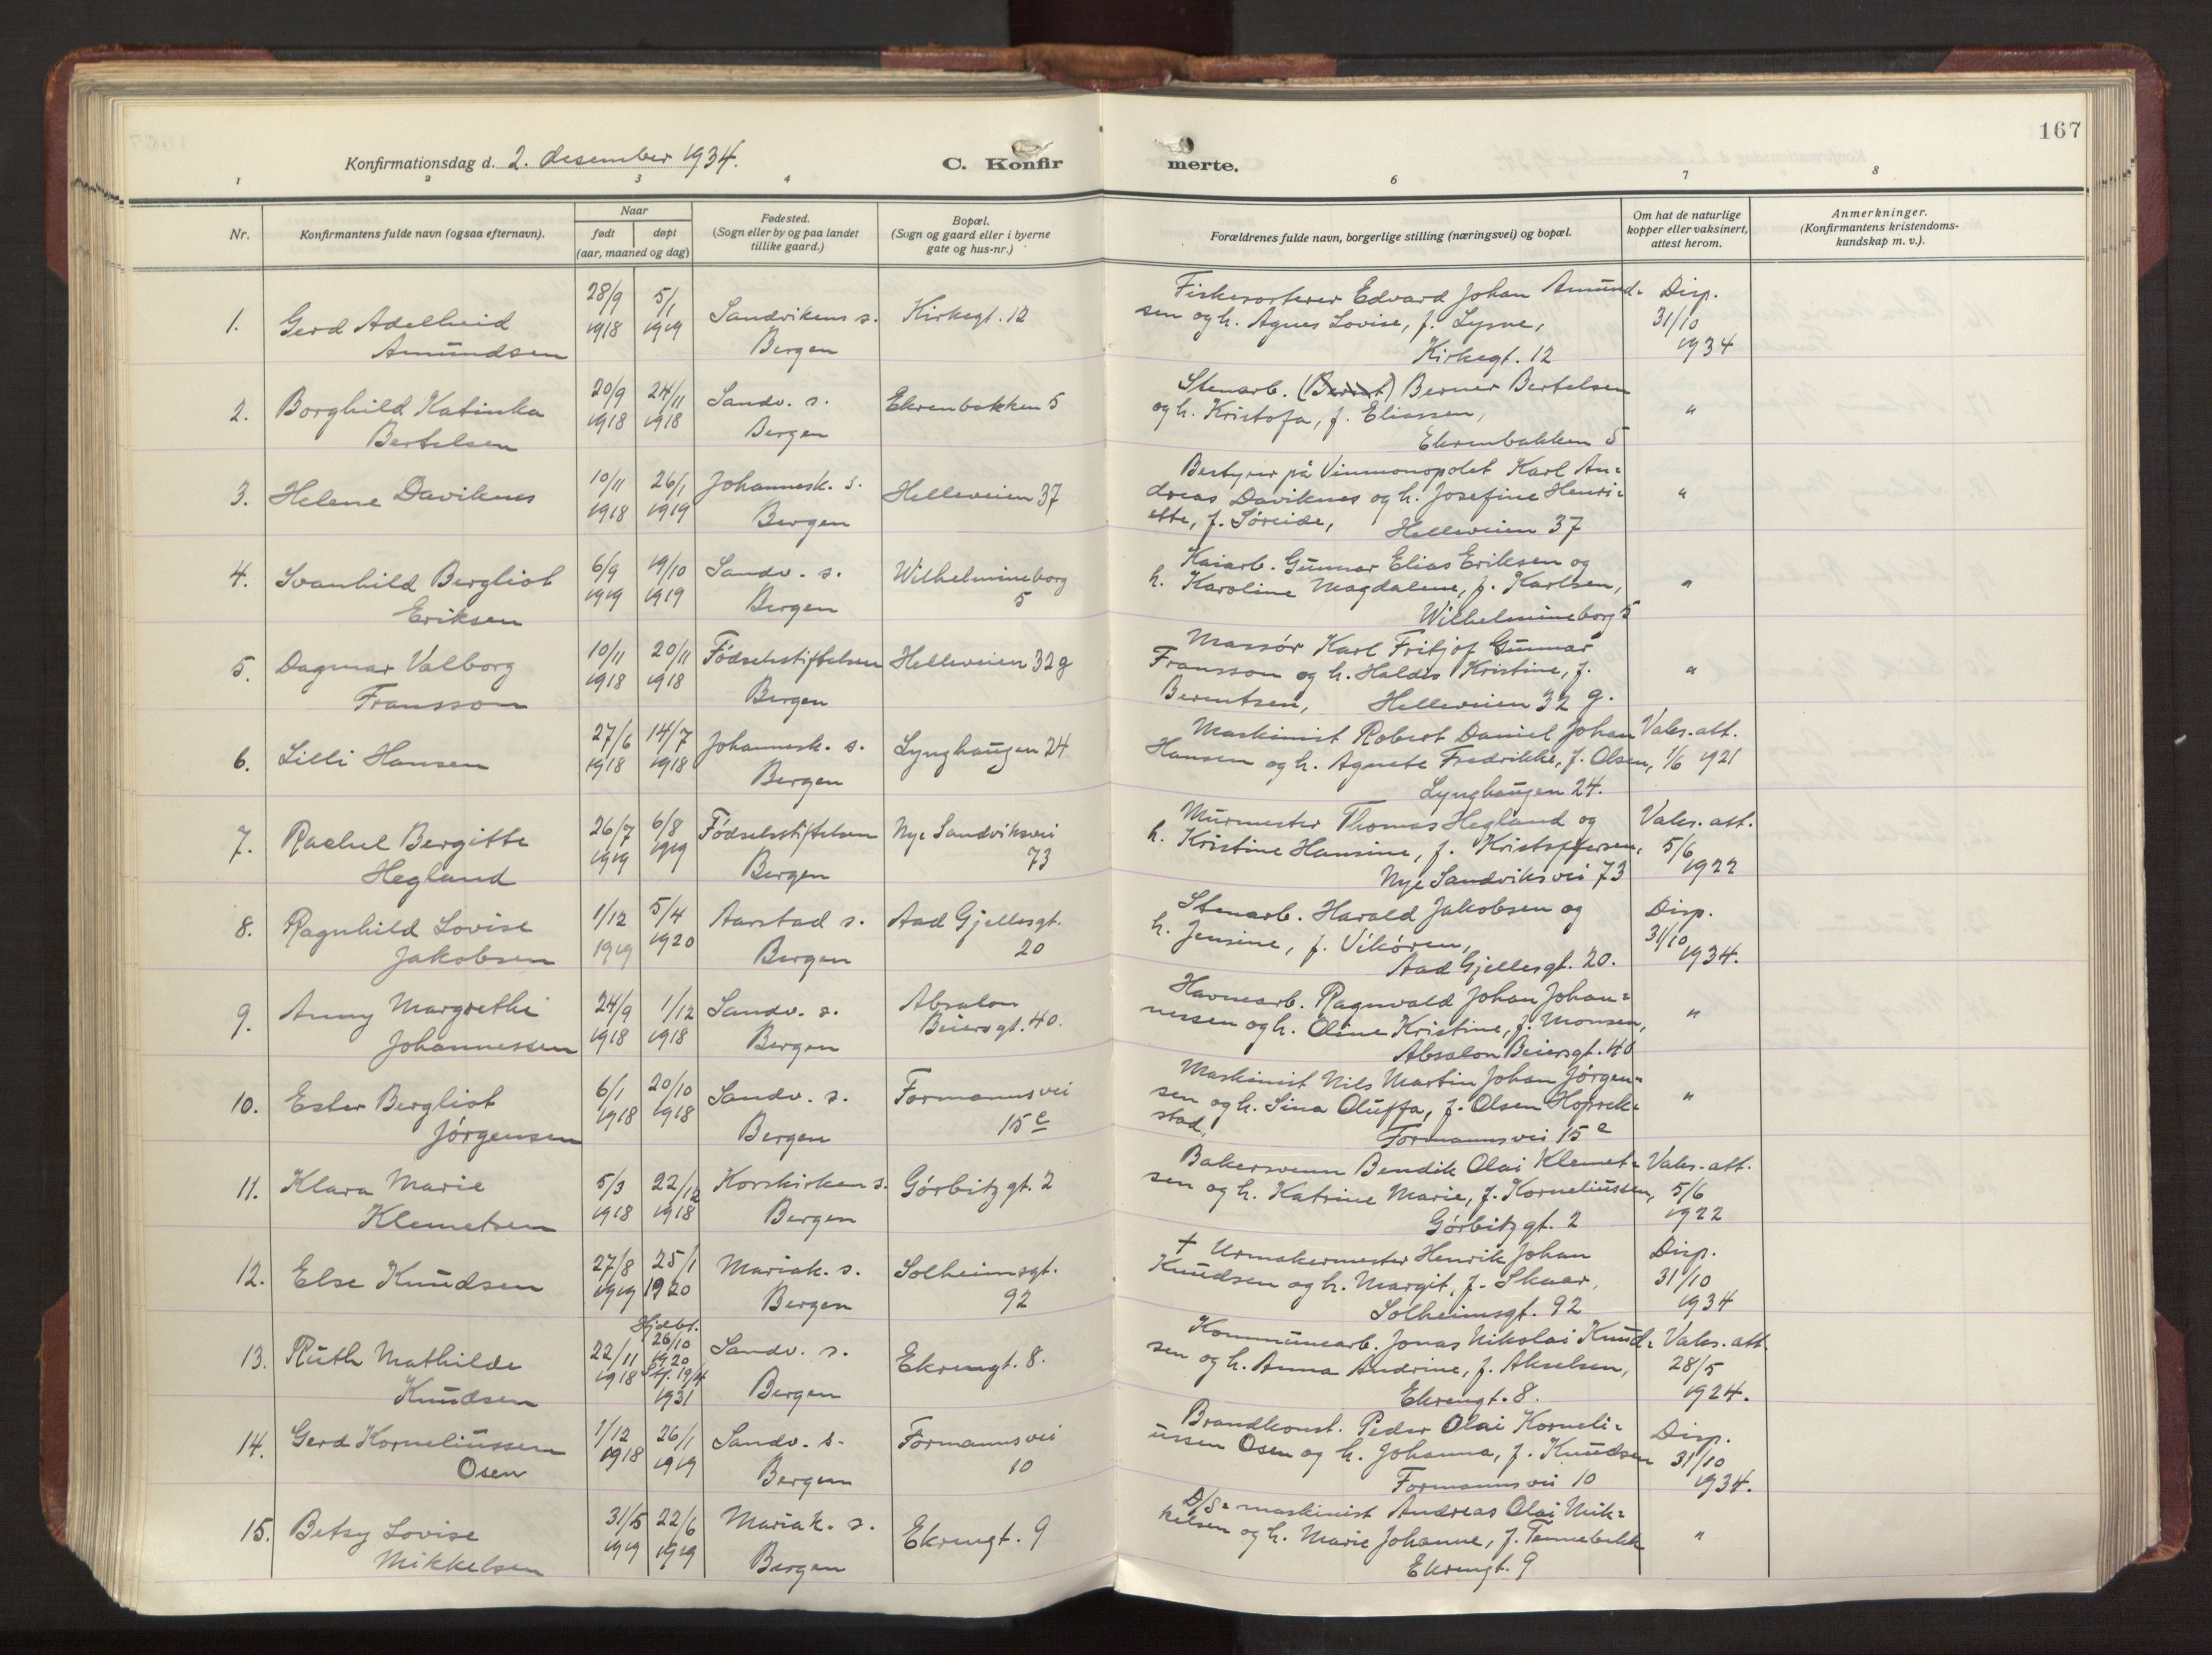 167
Konfirmationsdag d. 2. desember 1934.
C. Konfirmerte.
1 2 3 4 6 7 8
Nr.
Konfirmantens fulde navn (ogsaa efternavn).
Naar
født døpt
(aar, maaned og dag)
Fødested.
(Sogn eller by og paa landet
tillike gaard.)
Bopæl.
(Sogn og gaard eller i byerne
gate og hus-nr.)
Forældrenes fulde navn, borgerlige stilling (næringsvei) og bopæl.
Om hat de naturlige
kopper eller vaksinert,
attest herom.
Anmerkninger.
(Konfirmantens kristendoms-
kundskap m. v.).
1. Gerd Adelheid
Amundsen
28/9
1918
5/1
1919
Sandvikens s.
Bergen
Kirkegt. 12
Fiskesorterer Edvard Johan Amund-
sen og h. Agnes Lovise, f. Lysne,
Kirkegt. 12
Disp.
31/10
1934
2. Borghild Katinka
Bertelsen
20/9
1918
24/11
1918
Sandv. s.
Bergen
Ekrenbakken 5
Stenarb. (Bernt) Berner Bertelsen
og h. Kristofa, f. Eliassen,
Ekrenbakken 5
"
3. Helene Daviknes
10/11
1918
26/1
1919
Johannesk. s.
Bergen
Helleveien 37
Bestyrer på Vinmonopolet Karl An-
dreas Daviknes og h. Josefine Henri-
ette, f. Søreide,
Helleveien 37
"
4. Svanhild Bergliot
Eriksen
6/9
1919
19/10
1919
Sandv. s.
Bergen
Wilhelmineborg
5
Kaiarb. Gunnar Elias Eriksen og
h. Karoline Magdalene, f. Karlsen,
Wilhelmineborg 5
"
5. Dagmar Valborg
Fransson
10/11
1918
20/11
1918
Fødselsstiftelsen
Bergen
Helleveien 32 g
Massør Karl Fritjof Gunnar
Fransson og h. Haldis Kristine, f.
Berentsen, Helleveien 32 g.
"
6. Lilli Hansen
27/6
1918
14/7
1918
Johannesk. s.
Bergen
Lynghaugen 24
Maskinist Robert Daniel Johan
Hansen og h. Agnete Fredrikke, f. Olsen,
Lynghaugen 24.
Vaks. att.
1/6 1921
7. Rachel Bergitte
Hegland
26/7
1919
6/8
1919
Fødselsstiftelsen
Bergen
Nye Sandviksvei
73
Murmester Thomas Hegland og
h. Kristine Hansine, f. Kristoffersen,
Nye Sandviksvei 73
Vaks. att.
5/6
1922
8. Ragnhild Lovise
Jakobsen
1/12
1919
5/4
1920
Aarstad s.
Bergen
Aad Gjellesgt.
20
Stenarb. Harald Jakobsen og
h. Jensine, f. Vikøren,
Aad Gjellesgt. 20.
Disp.
31/10
1934.
9. Anny Margrethe
Johannessen
24/9
1918
1/12
1918
Sandv. s.
Bergen
Absalon
Beiersgt. 40.
Havnearb. Ragnvald Johan Johan-
nessen og h. Oline Kristine, f. Monsen,
Absalon Beiersgt. 40
"
10. Ester Bergliot
Jørgensen
6/1
1918
20/10
1918
Sandv. s.
Bergen
Formannsvei
15 c
Maskinist Nils Martin Johan Jørgen-
sen og h. Sina Oluffa, f. Olsen Hoprek-
stad,
Formannsvei 15 c
"
11. Klara Marie
Klemetsen
5/3
1918
22/12
1918
Korskirken s.
Bergen
Gørbitzgt. 2
Bakersvenn Bendik Olai Klemet-
sen og h. Katrine Marie, f. Korneliussen,
Gørbitzgt. 2
Vaks. att.
5/6
1922
12. Else Knudsen
27/8
1919
25/1
1920
Mariak. s.
Bergen
Solheimsgt.
92
† Urmakermester Henrik Johan
Knudsen og h. Margit, f. Skaar,
Solheimsgt. 92
Disp.
31/10
1934
13. Ruth Mathilde
Knudsen
22/11
1918
Hjdbt.
26/10
1920
Stf. 19/4
1931
Sandv. s.
Bergen
Ekrengt. 8.
Kommunearb. Jonas Nikolai Knud-
sen og h. Anna Andrine, f. Akselsen,
Ekrengt. 8.
Vaks. att.
28/5
1924.
14. Gerd Korneliussen
Osen
1/12
1918
26/1
1919
Sandv. s.
Bergen
Formannsvei
10
Brandkonst. Peder Olai Korneli-
ussen Osen og h. Johanna, f. Knudsen
Formannsvei 10
Disp.
31/10
1934.
15. Betsy Lovise
Mikkelsen
31/5
1919
22/6
1919
Mariak. s.
Bergen
Ekrengt. 9
D/S-maskinist Andreas Olai Mik-
kelsen og h. Marie Johanne, f. Tennebekk
Ekrengt. 9
"